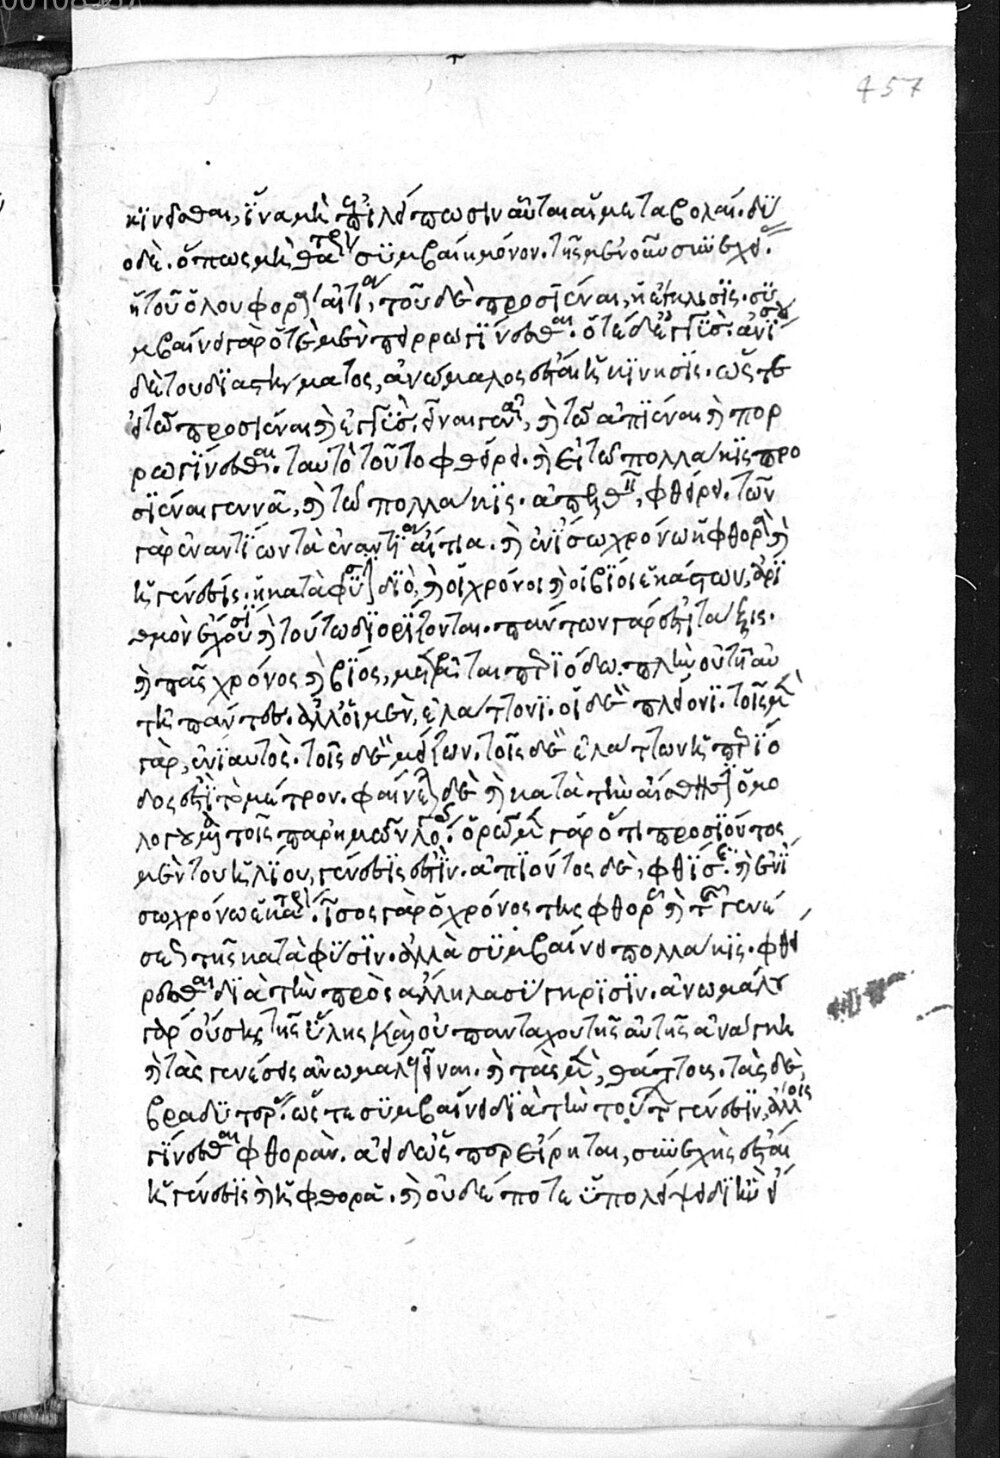 457
κινεῖσθαι, ἵνα μὴ ἐπιλείπωσιν αὗται αἱ μεταβολαί. δύ
ο δὲ. ὅπως μὴ θάτερον συμβαίνη μόνον. τῆς μὲν οὖν συνεχείας
ἡ τοῦ ὅλου φορὰ αἰτία, τοῦ δὲ προσιέναι, ἡ ἔγκλισις. συ
μβαίνει γὰρ ὁτὲ μὲν πόρρω γίνεσθαι. ὁτὲ δὲ ἐγγύς. ἀνίσου
δὲ τοῦ διαστήματος, ἀνώμαλος ἔσται ἡ κίνησις. ὥστε
εἰ τῶ προσιέναι καὶ ἐγγὺς εἶναι γεννᾶ, καὶ τῶ ἀπιέναι καὶ πόρ
ρω γίνεσθαι. ταυτὸ τοῦτο φθείρει. καὶ εἰ τῶ πολλάκις προ
σιέναι γεννᾶ, καὶ τῶ πολλάκις ἀπελθεῖν, φθείρει. τῶν
γὰρ ἐναντίων τὰ ἐναντία αἴτια. καὶ ἐν ἴσω χρόνω ἡ φθορὰ καὶ
ἡ γένεσις. ἡ κατὰ φύσιν διὸ, καὶ οἱ χρόνοι καὶ οἱ βίοι ἑκάστων, ἀρι
θμὸν ἔχουσι καὶ τούτω διορίζονται. πάντων γάρ ἐστι τάξις.
καὶ πᾶς χρόνος καὶ βίος, μετρεῖται περιόδω. πλὴν οὐ τῆ αὐ
τῆ πάντες. ἀλλ' οἱ μὲν, ἐλάττονι. οἱ δὲ πλείονι. τοῖς μὲν
γὰρ, ἐνιαυτὸς. τοῖς δὲ μείζων. τοῖς δὲ ἐλάττων ἡ περίο
δος ἐστὶ τὸ μέτρον. φαίνεται δὲ καὶ κατὰ τὴν αἴσθησιν ὁμο
λογούμενα τοῖς παρ' ἡμῶν λόγοις. ὁρῶμεν γὰρ ὅτι προσιόντος
μὲν τοῦ ἡλίου, γένεσις ἐστὶν. ἀπιόντος δὲ, φθίσις. καὶ ἐν ἴ
σω χρόνω ἑκάτερον. ἴσος γὰρ ὁ χρόνος τῆς φθορᾶς καὶ τῆς γενέ
σεως τῆς κατὰ φύσιν. ἀλλὰ συμβαίνει πολλάκις. φθεί
ρεσθαι διὰ τὴν πρὸς ἄλληλα σύγκρισιν. ἀνωμάλου
γὰρ οὔσης τῆς ὕλης καὶ οὐ πανταχοῦ τῆς αὐτῆς ἀνάγκη
καὶ τὰς γενέσεις ἀνωμάλους εἶναι. καὶ τὰς μὲν, θάττους. τὰς δὲ,
βραδυτέρας. ὥστε συμβαίνει διὰ τὴν τούτων γένεσιν, ἄλλοις
γίνεσθαι φθορὰν. ἀεὶ δ' ὥσπερ εἴρηται, συνεχὴς ἔσται
ἡ γένεσις καὶ ἡ φθορὰ. καὶ οὐδέποτε ὑπολείψει δι' ἣν εἴ